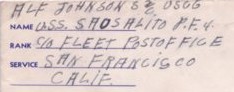 ALF JOHNSON S 2/c USCG
NAME U.S.S. SAUSALITO P.F. 4.
RANK C/O FLEET POST OFFICE
SERVICE SAN FRANCISCO
CALIF.